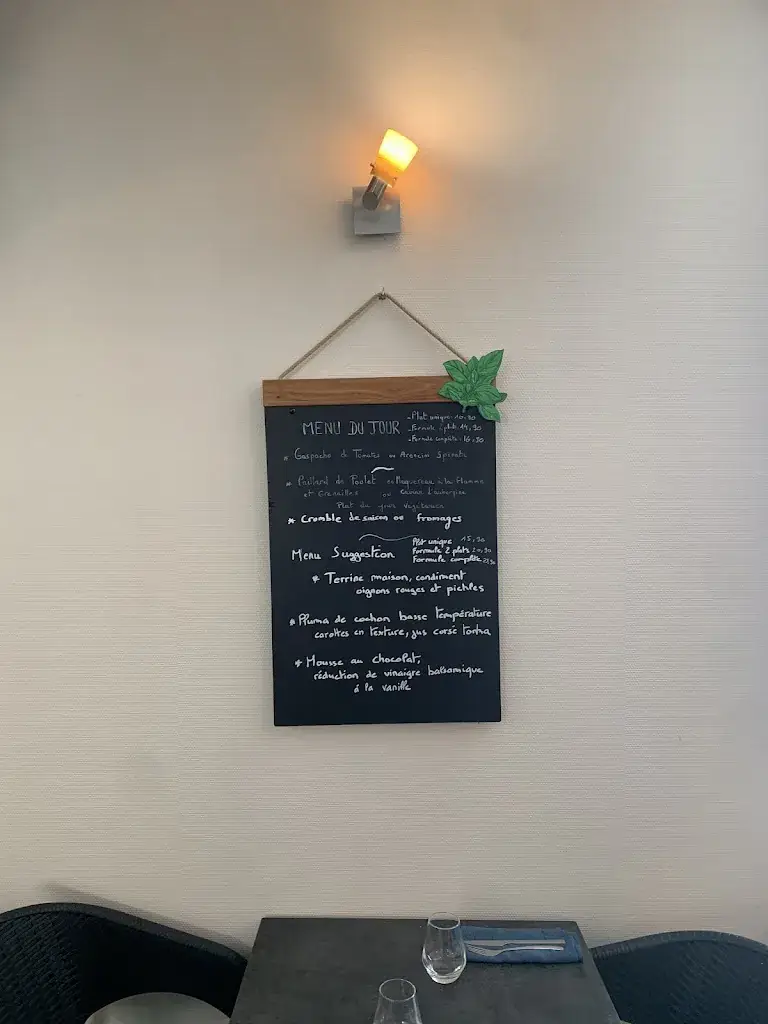 MENU DU JOUR
- Plat unique : 10,90
- Formule 2 plats 14,90
- Formule complète : 16,90
* Gaspacho de Tomates ou Arancini Epinards
* Paillard de Poulet ou Maquereau à la Flamme
et Grenailles ou Caviar d'aubergine
Plat du jour Végétarien
* Crumble de saison ou fromages
Menu Suggestion
Plat unique 15,90
Formule 2 plats 20,90
Formule complète
* Terrine maison, condiment
oignons rouges et pickles
* Pluma de cochon basse température
carottes en texture, jus corsé
* Mousse au chocolat,
réduction de vinaigre balsamique
à la vanille